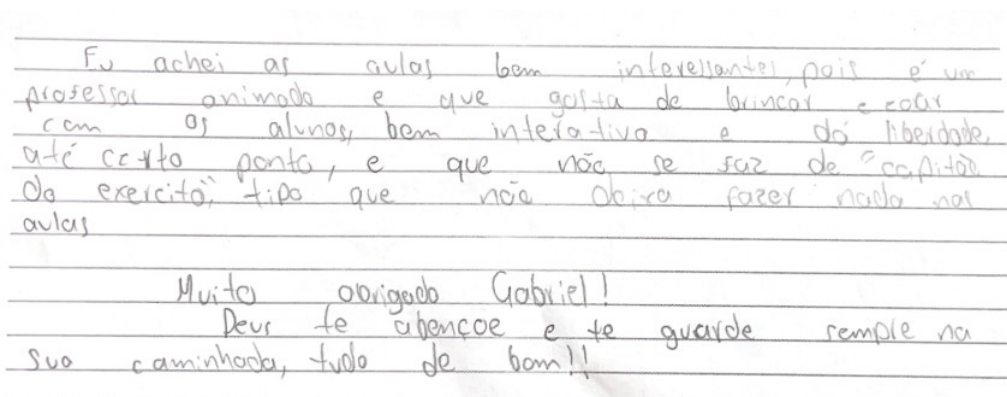 Eu achei as aulas bem interessantes, pois é um
professor animado e que gosta de brincar e zoar
com os alunos, bem interativo e dá liberdade,
até certo ponto, e que não se faz de "capitão
do exercito", tipo que não deixa fazer nada nas
aulas
Muito obrigado Gabriel!
Deus te abençoe e te guarde sempre na
sua caminhada, tudo de bom!!